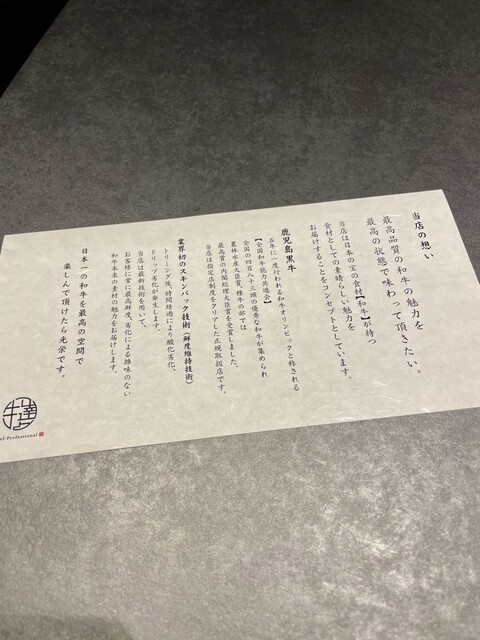 当店の想い
最高品質の和牛の魅力を
最高の状態で味わって頂きたい。
当店は日本の宝の食材【和牛】が持つ
食材としての素晴らしい魅力を
お届けすることをコンセプトとしています。
鹿児島黒牛
五年に一度行われる和牛オリンピックと称される
【全国和牛能力共進会】
全国の四百八十三頭の優秀な和牛が集められ
農林水産大臣賞、種牛の部では
最高賞の内閣総理大臣賞を受賞しました。
当店は指定店制度をクリアした正規取扱店です。
業界初のスキンパック技術(鮮度維持技術)
トリミング後、時間経過により酸化劣化、
ドリップ劣化が発生します。
当店は最新技術を用いて、
お客様に常に最高鮮度、劣化による雑味のない
和牛本来の素材の魅力をお届けします。
日本一の和牛を最高の空間で
楽しんで頂けたら光栄です。
牛達
ef Professional